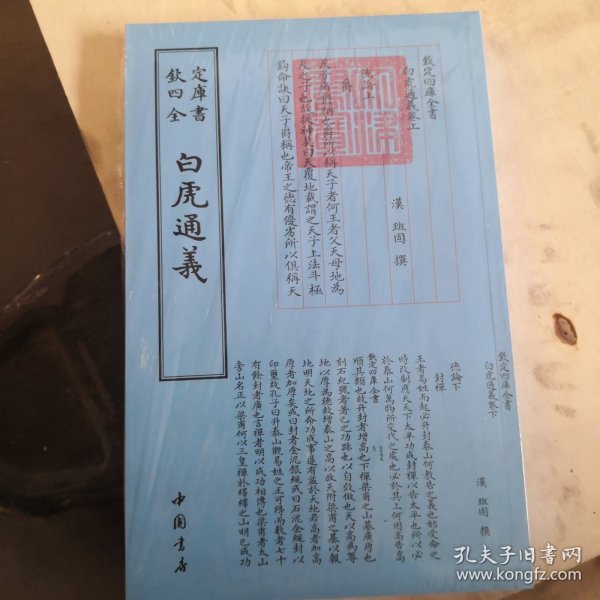 欽定
四庫
全書
白虎通義
欽定四庫全書
白虎通義卷上
漢 班固 撰
德論上
爵
天子者爵稱也爵所以稱天子者何王者父天母地為
天之子也故援神契曰天覆地載謂之天子上法斗極
鈎命訣曰天子爵稱也帝王之德有優劣所以俱稱天
欽定四庫全書
白虎通義卷下
漢 班固 撰
德論下
封禪
王者易姓而起必升封泰山何教告之義也始受命之
時改制應天天下太平功成封禪以告太平也所以必
於泰山何萬物所交代之處也必於其上何因高告高
欽定四庫全書
順其類也故升封者增高也下禪梁甫之山基廣厚也
刻石紀號者著己之功跡也以自效倣也天以高為尊
地以厚為德故增泰山之高以放天附梁甫之基以報
地明天地之所命功成事遂有益於天地若高者加高
厚者加厚矣或曰封者金泥銀繩或曰石泥金繩封以
印璽故孔子曰升泰山觀易姓之王可得而數者七十
有餘封者廣也言禪者明以成功相傳也梁甫者太山
旁山名正以梁甫何以三皇禪於繹繹之山明已成功
中国书店
孔夫子旧书网
www.kongfz.com